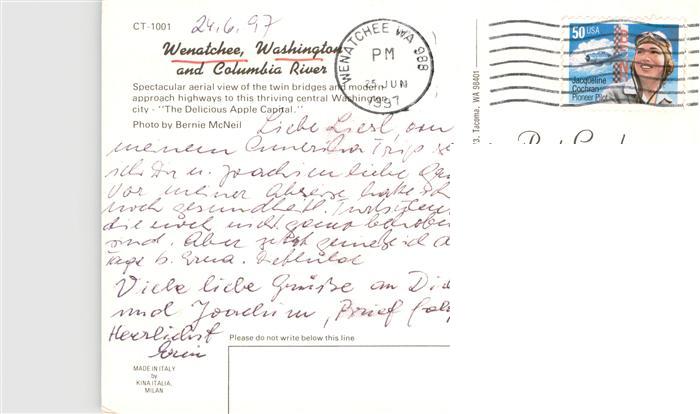 CT-1001
24.6.97
Wenatchee, Washington
and Columbia River
Spectacular aerial view of the twin bridges and modern
approach highways to this thriving central Washington
city - "The Delicious Apple Capital."
Photo by Bernie McNeil
WENATCHEE WA 988
PM
25 JUN
1997
50 USA
Jacqueline
Cochran
Pioneer Pilot
3, Tacoma, WA 98401
Liebe Liesl, von
meinem Amerika Trip
Joachim liebe
Vor meiner Abreise hatte ich
noch gesundheitl.
die noch nicht ganz behoben
sind. Aber jetzt genieße ich
Tage b. Erna
Viele liebe Grüße an Dich
und Joachim, Brief folgt
Herzlichst
Please do not write below this line
MADE IN ITALY
by
KINA ITALIA,
MILAN